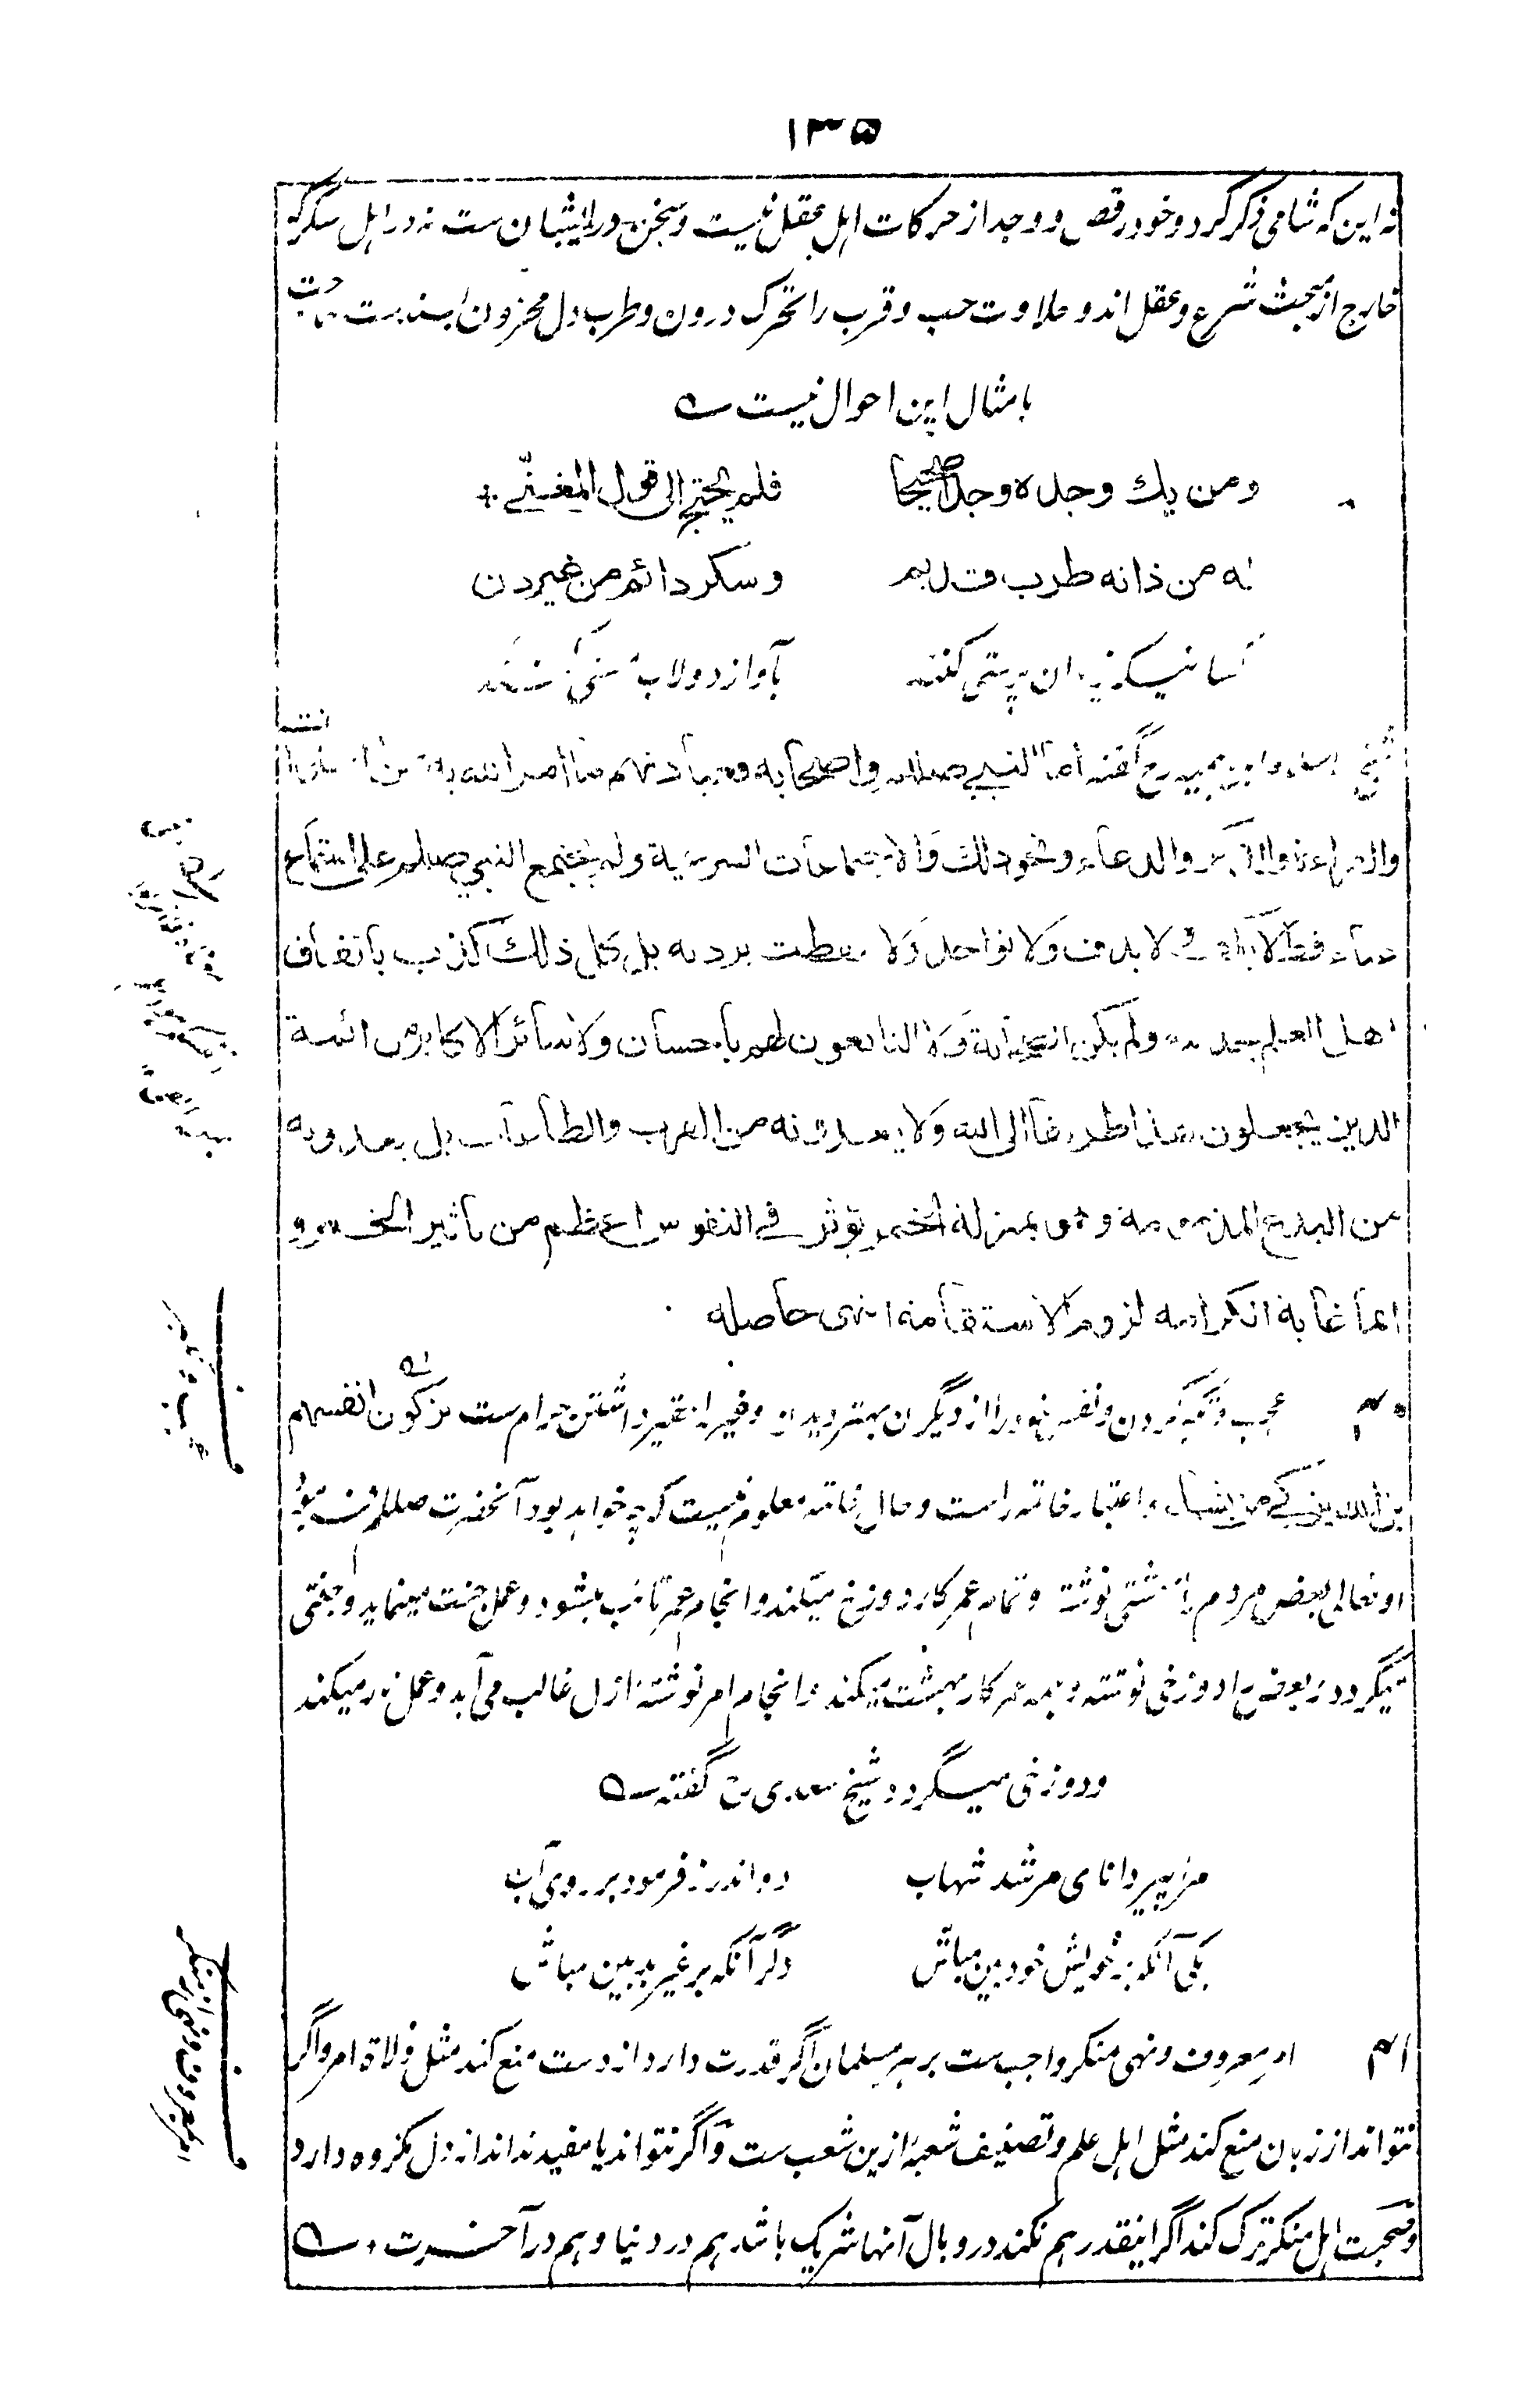 ۱۳۵
نه این که شامی ذکر کرد و خود رقص و وجد از حرکات اهل عقل نیست و سخن در ایشان ست نه در اهل سکر که
خارج از مبحث شرع و عقل اند و حلاوت حب و قرب را تحرک درون و طرب دل محزون بسندست حاجت
بامثال این احوال نیست ؎
ومن يك وجده وجدا صحيحا فلم يحتج الى قول المغنّي
له من ذاته طرب قديم وسكر دائم من غير دن
کسانیکه یزدان پرستی کنند بآواز دولاب مستی کنند
شیخ گفته أما النبي صلعم واصحابه وما أمر الله به من
والقراءة والذكر والدعاء ونحو ذلك والاجتماعات الشرعية ولم يجتمع النبي صلعم على استماع
غناء قط لا بكف ولا بدف ولا تواجد ولا سقطت بردته بل كل ذلك كذب باتفاق
اهل العلم بحديثه ولم يكن الصحابة ولا التابعون لهم باحسان ولا سائر الاكابر من ائمة
الدين يجعلون هذا طريقا الى الله ولا يعدونه من القرب والطاعات بل يعدونه
من البدع المذمومة وهى بمنزلة الخمر يؤثر في النفوس اعظم من تاثير الخمر و
انما غاية الكرامة لزوم الاستقامة انتهى حاصله
۴۰ عجب و تکبر کردن و نفس خود را از دیگران بهتر دیدن و غیر را حقیر داشتن حرام ست لا تزكون انفسهم
بل الله يزكي من يشاء و اعتبار خاتمه راست و حال خاتمه معلوم نیست که چه خواهد بود آنحضرت صلعم
او تعالی بعض مردم را بهشتی نوشته و تمام عمر کار دوزخ میکند و انجام عمر تائب میشود و عمل جنت مینماید و جنتی
میگردد و بعض را دوزخی نوشته و همه عمر کار بهشت میکند و انجام امر نوشته ازل غالب می آید و عمل نار میکند
و دوزخی میگردد شیخ سعدی رح گفته ؎
مرا پیر دانای مرشد شهاب دو اندرز فرمود بر روی آب
یکی آنکه بر خویش خودبین مباش دگر آنکه بر غیر بدبین مباش
۴۱ امر معروف و نهی منکر واجب ست بر هر مسلمان اگر قدرت دارد از دست منع کند مثل ولاة امر و اگر
نتواند از زبان منع کند مثل اهل علم و تصنیف شعبهٔ ازین شعب ست و اگر نتواند یا مفید نداند از دل مکروه دارد
و صحبت اهل منکر ترک کند اگر اینقدر هم نکند در وبال آنها شریک باشد هم در دنیا و هم در آخرت ؎